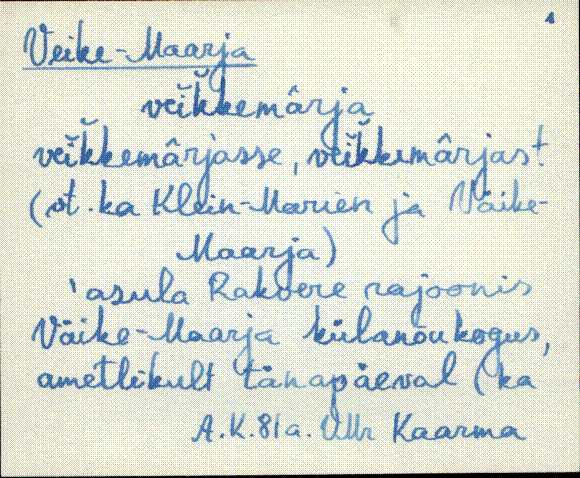 1
Veike-Maarja
veik̆kemârja
veik̆kemârjasse, veik̆kemârjast.
(vt. ka Klein-Marien ja Väike-
Maarja)
'asula Rakvere rajoonis
Väike-Maarja külanõukogus,
ametlikult tänapäeval (ka
A.K.81a. Kaarma